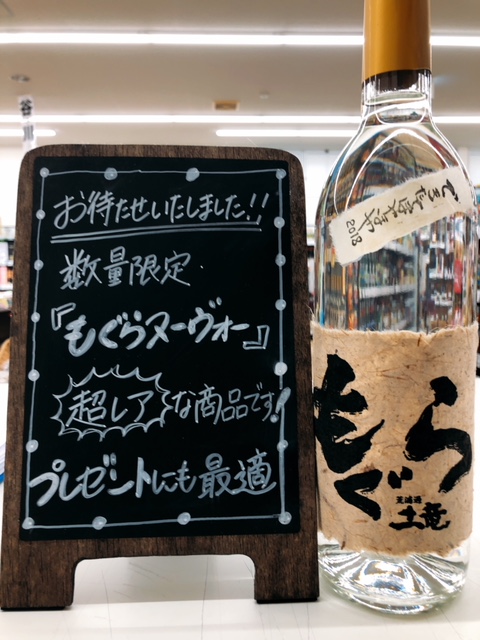 お待たせいたしました!!
数量限定.
『もぐらヌーヴォー』
超レアな商品です!
プレゼントにも最適
2018
もぐら
荒濾過
土竜